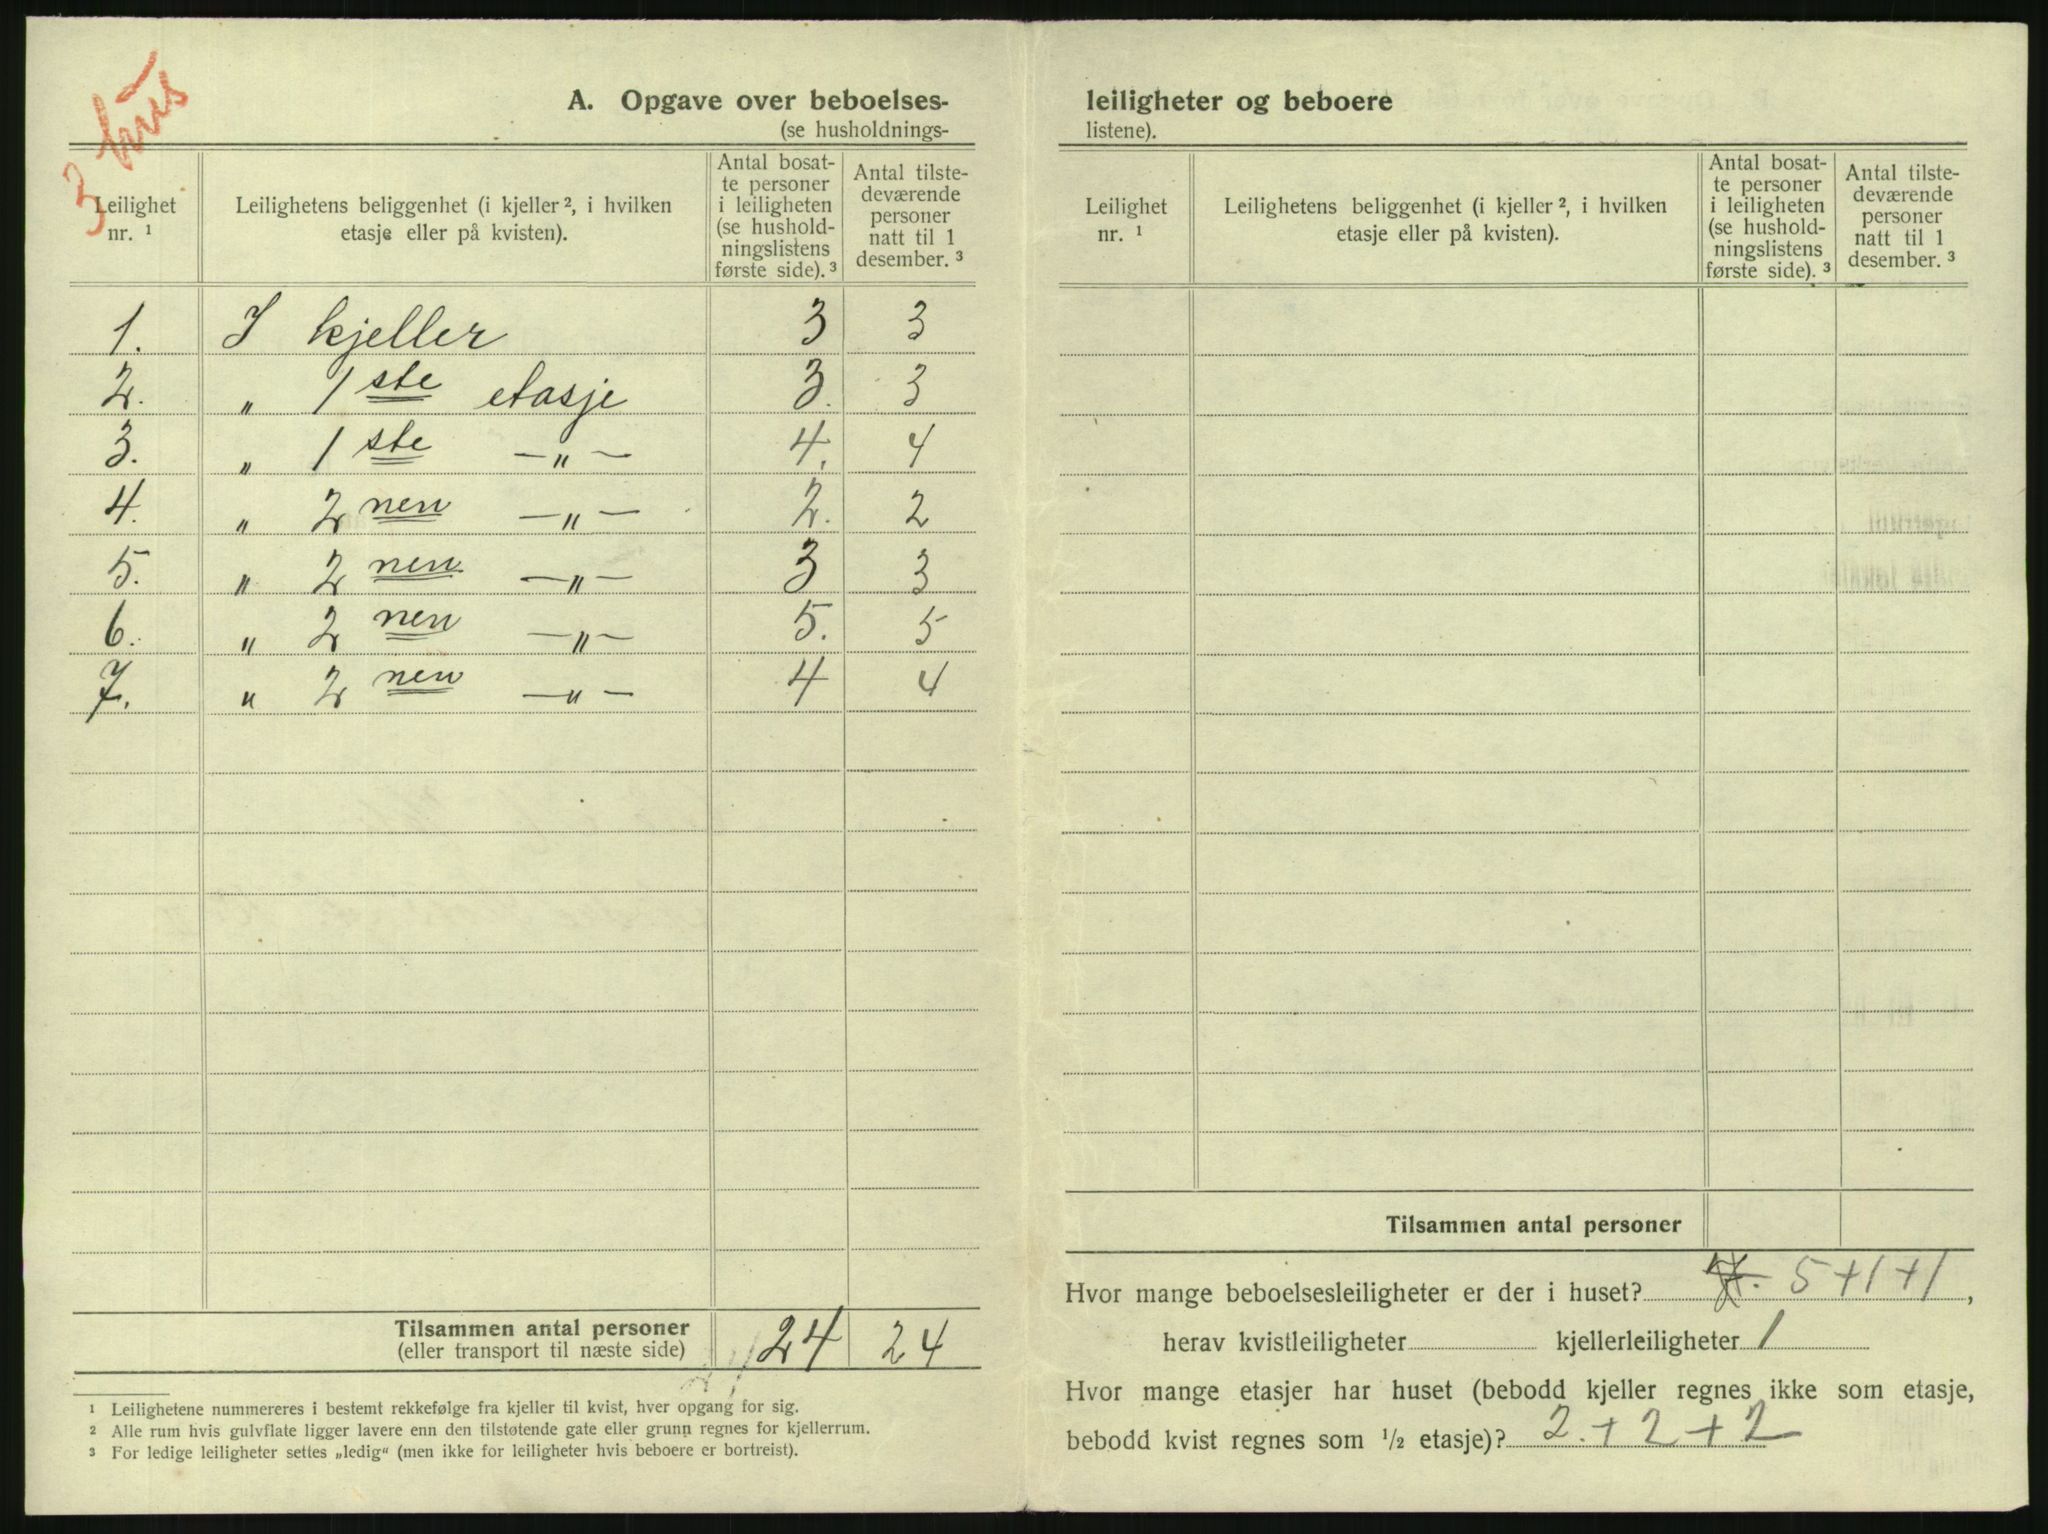 3 hus
A. Opgave over beboelses-
(se husholdnings-
Leilighet nr. 1
Leilighetens beliggenhet (i kjeller 2, i hvilken etasje eller på kvisten).
Antal bosatte personer i leiligheten (se husholdningslistens første side). 3
Antal tilstedeværende personer natt til 1 desember. 3
1. I kjeller 3 3
2. „ 1 ste etasje 3. 3
3. „ 1 ste —„— 4. 4
4. „ 2 nen —„— 2. 2
5. „ 2 nen —„— 3 3
6. „ 2 nen —„— 5. 5
7. „ 2 nen —„— 4 4
Tilsammen antal personer 24 24
(eller transport til næste side)
1 Leilighetene nummereres i bestemt rekkefølge fra kjeller til kvist, hver opgang for sig.
2 Alle rum hvis gulvflate ligger lavere enn den tilstøtende gate eller grunn regnes for kjellerrum.
3 For ledige leiligheter settes „ledig“ (men ikke for leiligheter hvis beboere er bortreist).
leiligheter og beboere
listene).
Leilighet nr. 1
Leilighetens beliggenhet (i kjeller 2, i hvilken etasje eller på kvisten).
Antal bosatte personer i leiligheten (se husholdningslistens første side). 3
Antal tilstedeværende personer natt til 1 desember. 3
Tilsammen antal personer
Hvor mange beboelsesleiligheter er der i huset? 7. 5+1+1,
herav kvistleiligheter kjellerleiligheter 1
Hvor mange etasjer har huset (bebodd kjeller regnes ikke som etasje,
bebodd kvist regnes som 1/2 etasje)? 2.+2+2